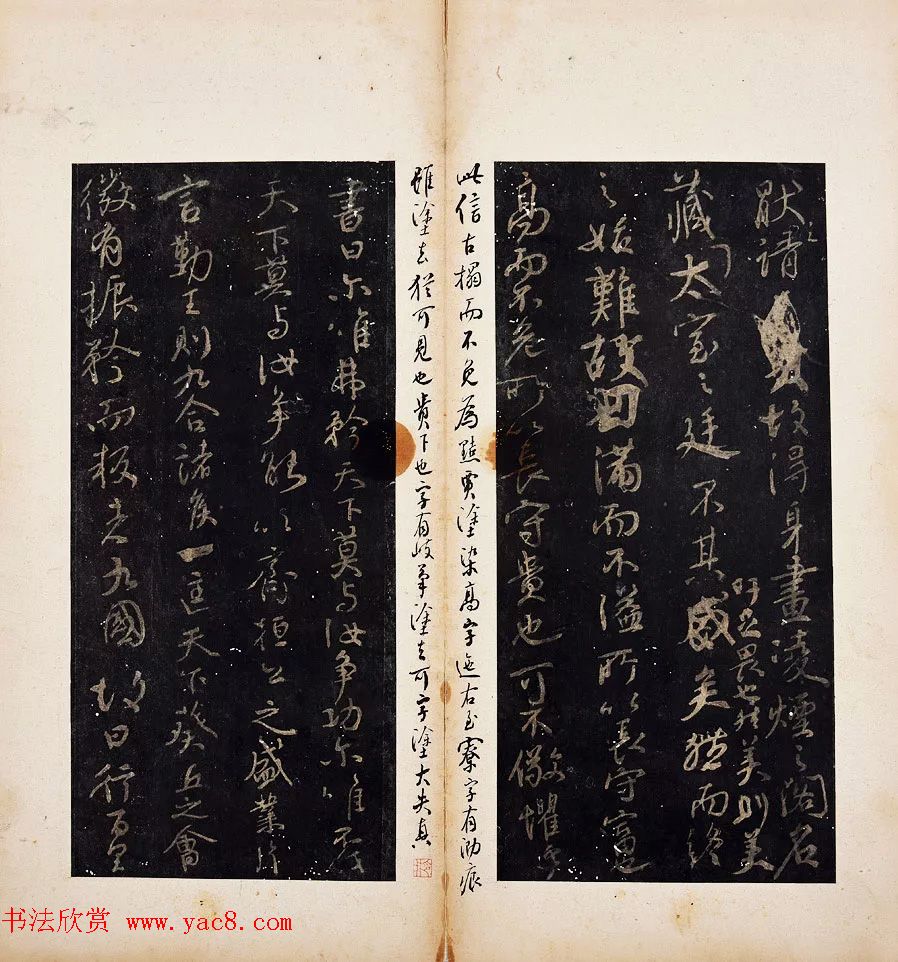 猒請
故得身畫凌煙之閣名
藏太室之廷不其盛矣然而終
吁足畏也然美則美
之始難故曰滿而不溢所以長守富
高而不危所以長守貴也可不儆懼乎
此信古搨而不免為黠賈塗染高字迤右至寮字有泐痕
雖塗去猶可見也貴下也字有岐筆塗去可字塗大失真
書曰爾唯弗矜天下莫與汝爭功爾唯不伐
天下莫與汝爭能以齊桓公之盛業片
言勤王則九合諸侯一匡天下葵丘之會
微有振矜而叛者九國故曰行百里
书法欣赏 www.yac8.com